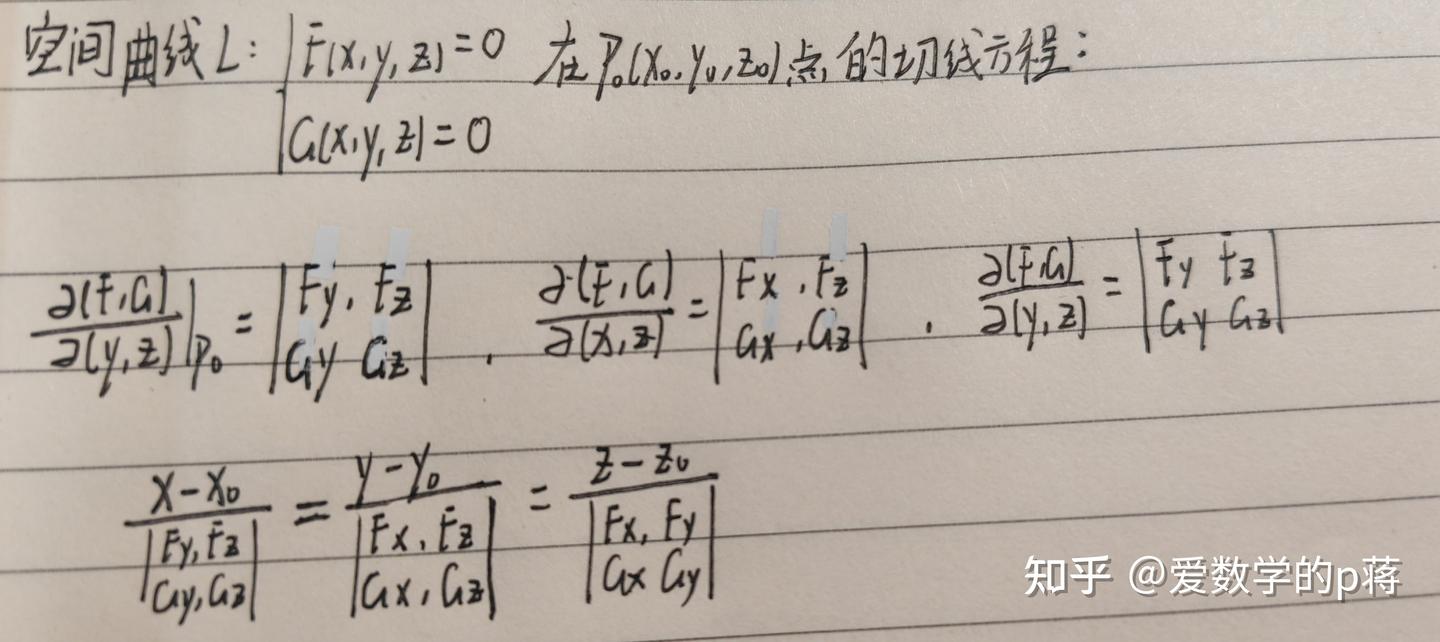 空间曲线L: { F(x,y,z)=0 在P₀(x₀,y₀,z₀)点的切线方程:
G(x,y,z)=0
∂(F,G)/∂(y,z)|P₀ = |Fy, Fz; Gy Gz| , ∂(F,G)/∂(x,z) = |Fx, Fz; Gx, Gz| , ∂(F,G)/∂(y,z) = |Fy Fz; Gy Gz|
(x-x₀)/|Fy, Fz; Gy, Gz| = (y-y₀)/|Fx, Fz; Gx, Gz| = (z-z₀)/|Fx, Fy; Gx Gy|
知乎 @爱数学的p蒋